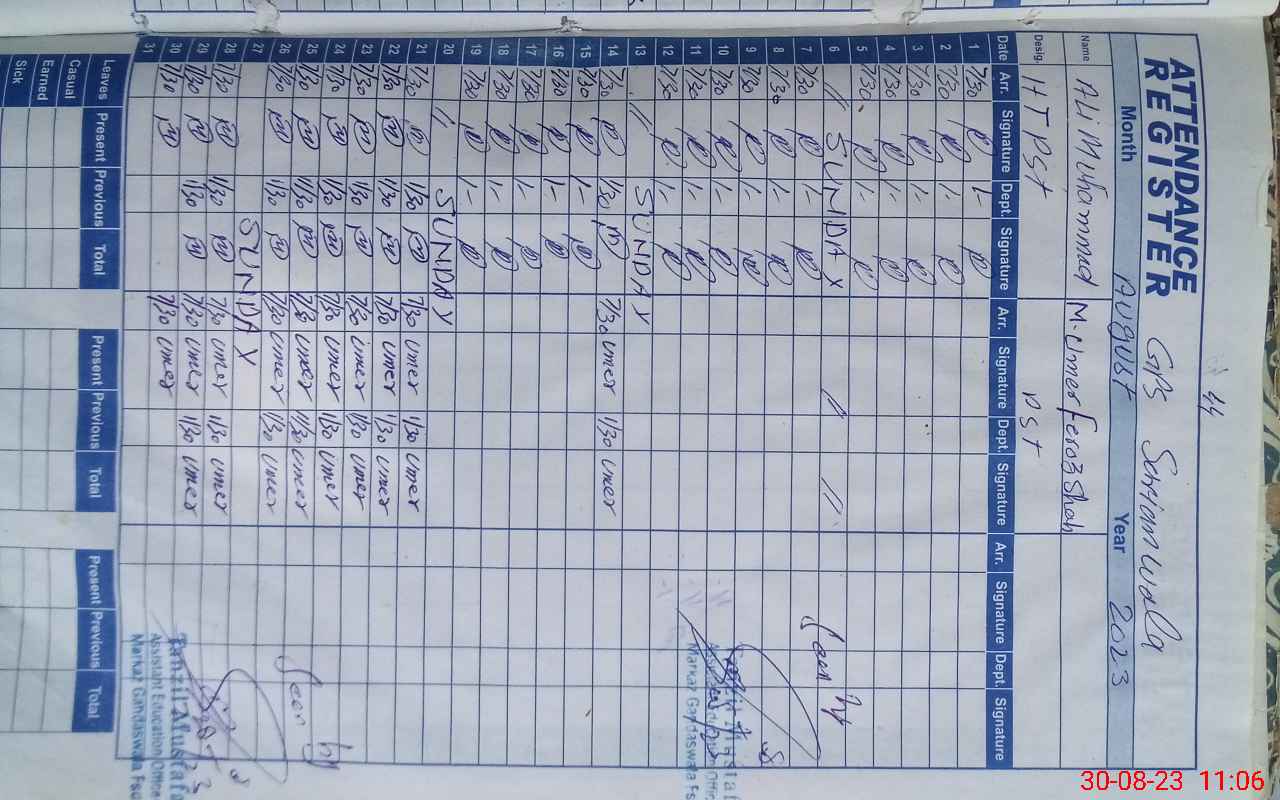 44
ATTENDANCE REGISTER GPS
Month August Year 2023
Name Ali Muhammad M. Umer feroz Shah
Desig. HTPSt PSt
Date Arr. Signature Dept. Signature Arr. Signature Dept. Signature Arr. Signature Dept. Signature
1 7/30 1/-
2 7/30
3 7/30 1/-
4 7/30 1/-
5 7/30 1/-
6 // SUNDAY // //
7 7/30 1/-
8 7/30 1/-
9 7/30 1/-
10 7/30 1/-
11 7/30 1/-
12 7/30 1/-
13 // SUNDAY
14 7/30 1/30 7/30 Umer 1/30 Umer
15 7/30 1/-
16 7/30 1/-
17 7/30 1/-
18 7/30 1/-
19 7/30 1/-
20 // SUNDAY
21 7/30 1/30 7/30 Umer 1/30 Umer
22 7/30 1/30 7/30 Umer 1/30 Umer
23 7/30 1/30 7/30 Umer 1/30 Umer
24 7/30 1/30 7/30 Umer 1/30 Umer
25 7/30 1/30 7/30 Umer 1/30 Umer
26 7/30 1/30 7/30 Umer 1/30 Umer
27 SUNDAY
28 7/30 1/30 7/30 Umer 1/30 Umer
29 7/30 1/30 7/30 Umer 1/30 Umer
30 7/30 7/30 Umer
31
Seen by
Markaz Gandaswala
Seen by
Tanzil Mustafa
Assistant Education Office
Markaz Gandaswala Fsd
Leaves Present Previous Total Present Previous Total Present Previous Total
Casual
Earned
Sick
30-08-23 11:06